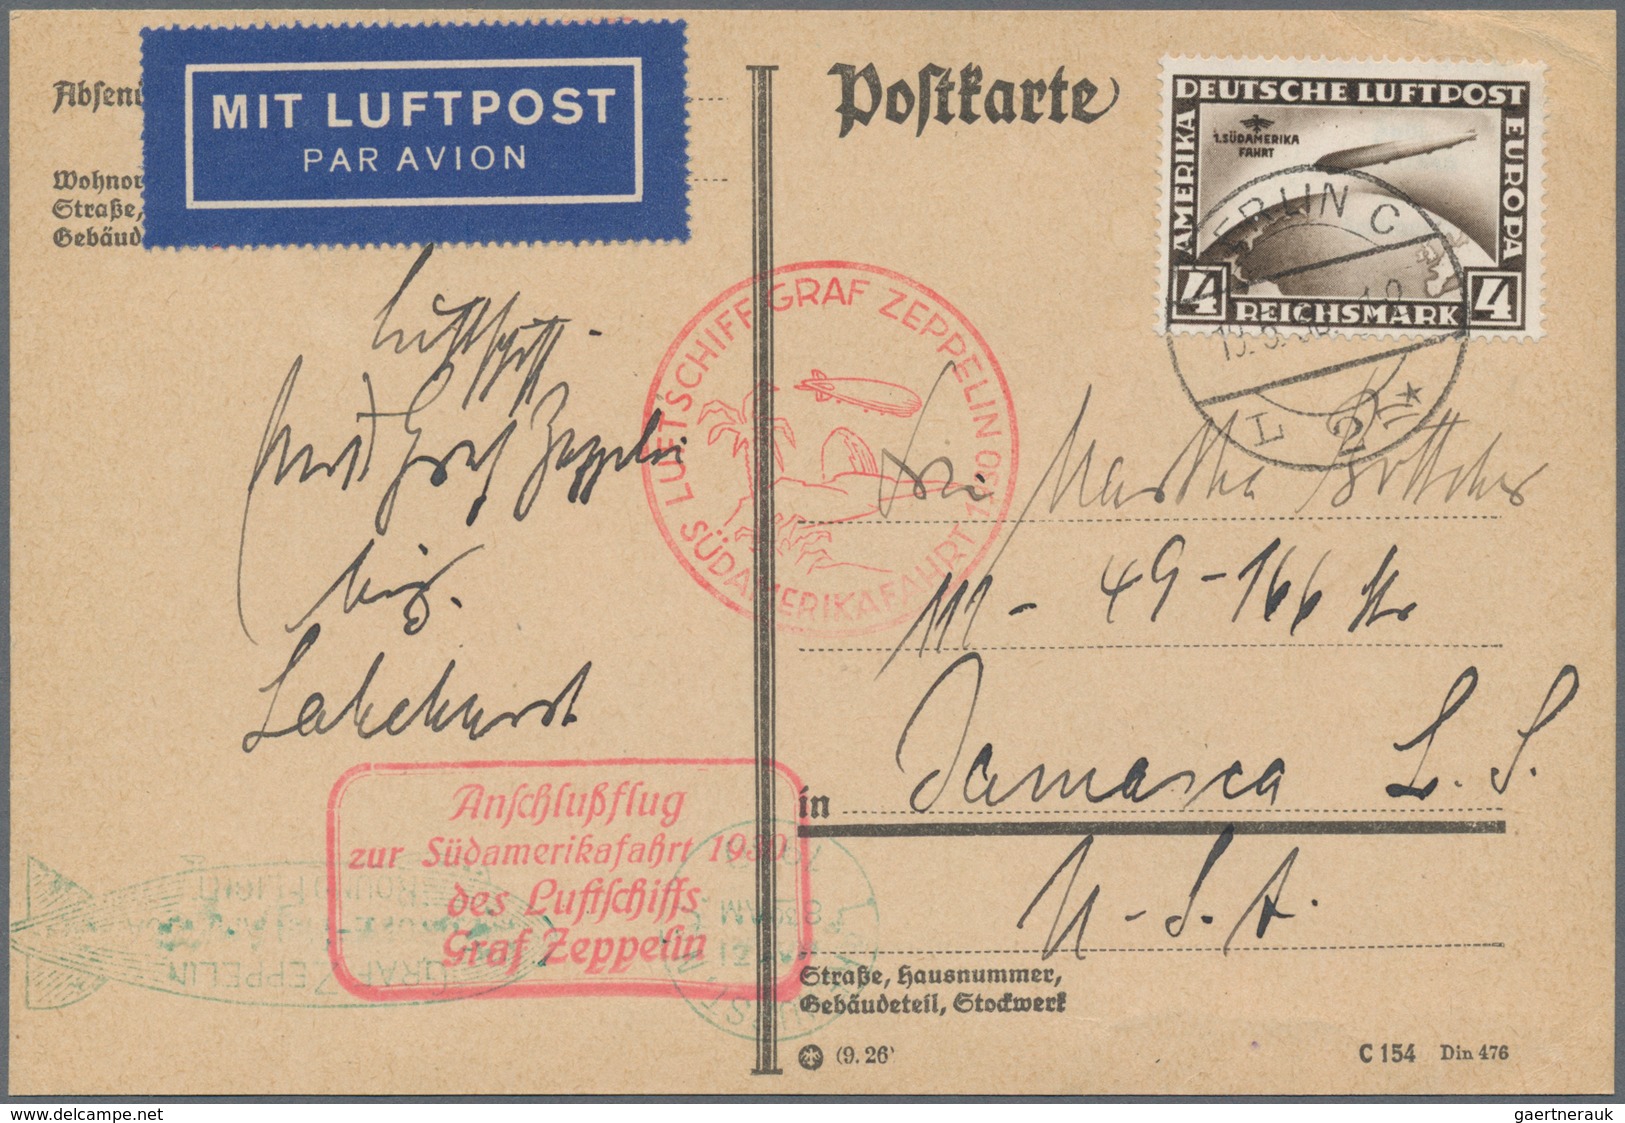 Absen
MIT LUFTPOST
PAR AVION
Wohnor
Straße,
Gebäud
Postkarte
DEUTSCHE LUFTPOST
AMERIKA
EUROPA
1.SÜDAMERIKA
FAHRT
4 REICHSMARK 4
BERLIN C
LUFTSCHIFF GRAF ZEPPELIN 1930
SÜDAMERIKAFAHRT
Luftschiff-
Graf Zeppelin
Lakehurst
Martha Böttcher
111 - 49 - 166 Str
in Jamaica L. I.
U. S. A.
Anschlußflug
zur Südamerikafahrt 1930
des Luftschiffs
Graf Zeppelin
GRAF ZEPPELIN
Straße, Hausnummer,
Gebäudeteil, Stockwerk
(9. 26)
C 154 Din 476
www.delcampe.net
gaertnerauk